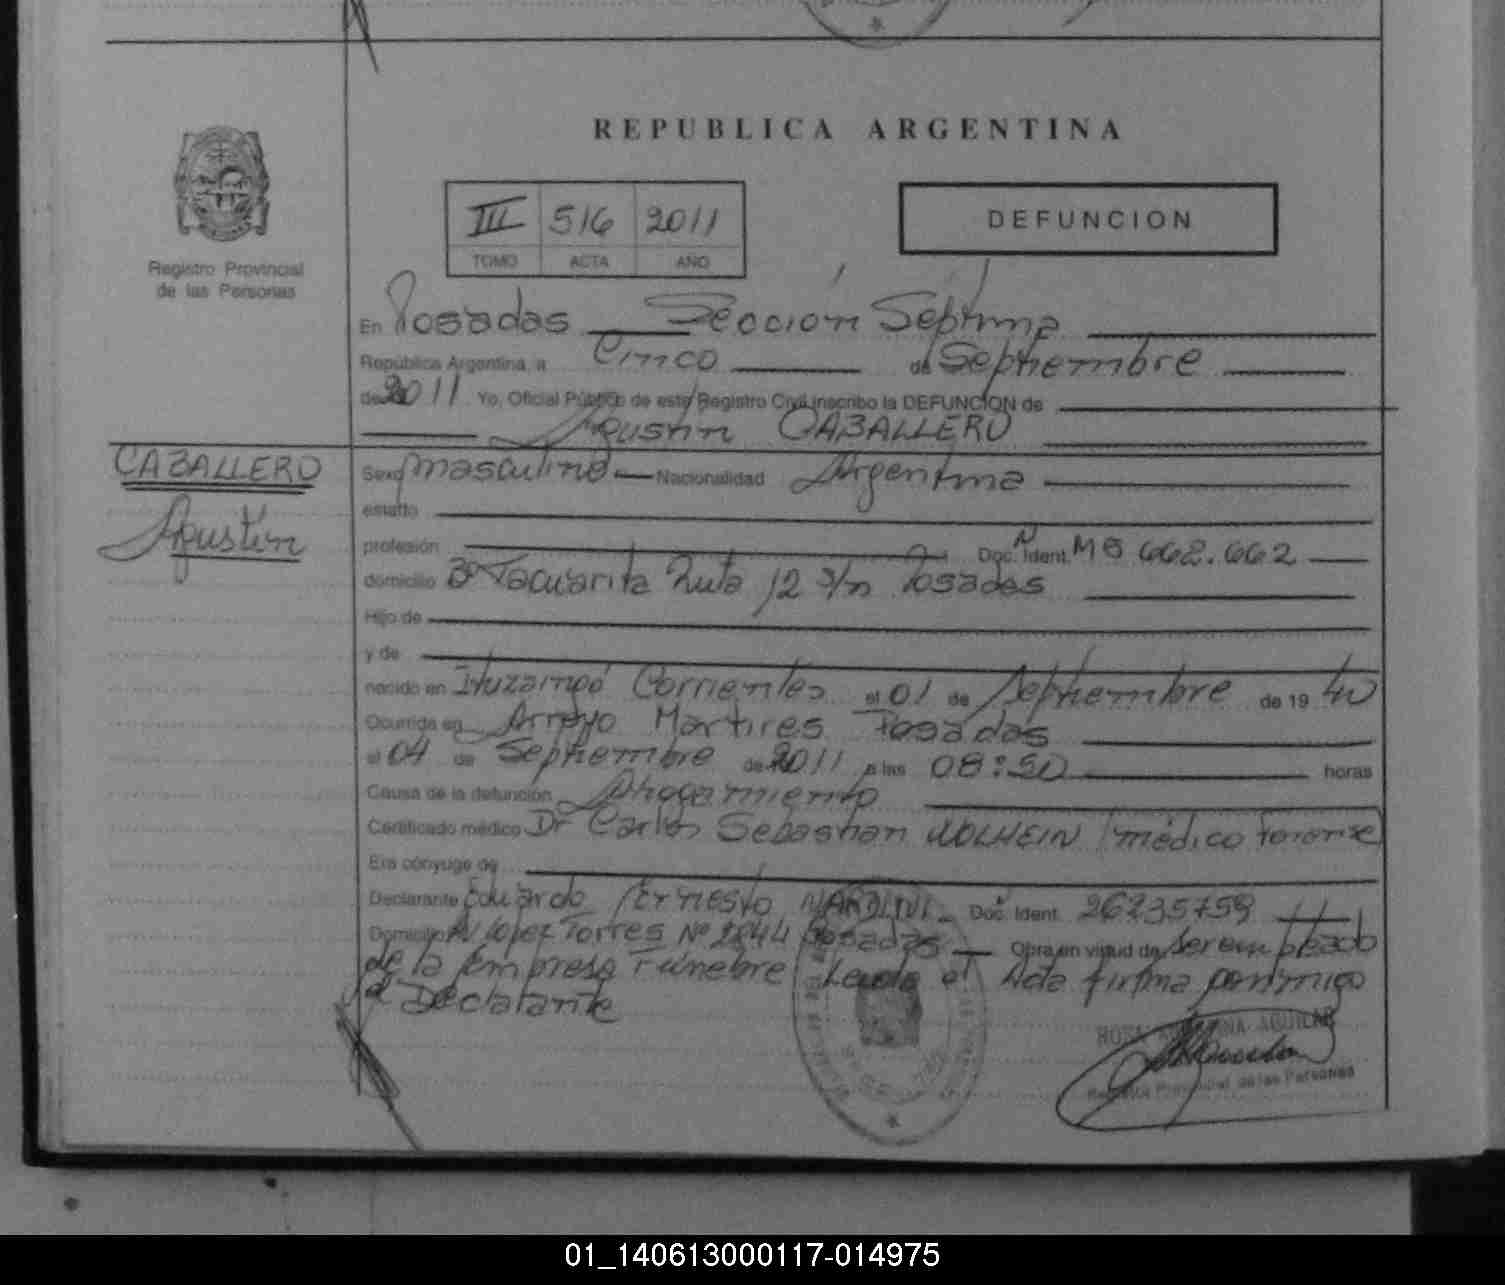 REPUBLICA ARGENTINA
III 516 2011
TOMO ACTA AÑO
DEFUNCION
Registro Provincial
de las Personas
En Posadas Sección Séptima
República Argentina, a Cinco de Septiembre
de 2011 Yo, Oficial Público de este Registro Civil inscribo la DEFUNCION de
Agustín CABALLERO
CABALLERO
Agustín
Sexo masculino Nacionalidad Argentina
estatto
profesión Doc. Ident. M8 662.662
domicilio Bº Tacuarita Ruta 12 s/n Posadas
Hijo de
y de
nacido en Ituzaingó Corrientes el 01 de Septiembre de 19 40
Ocurrida en Arroyo Martires Posadas
el 04 de Septiembre de 2011 a las 08:50 horas
Causa de la defunción Ahogamiento
Certificado médico Dr Carlos Sebastian médico forense
Era cónyuge de
Declarante Eduardo Ernesto Doc. Ident. 26235759
Domicilio Av Lopez Torres Nº 2844 Posadas Obra en virtud de ser empleado
de la Empresa Funebre Leida el Acta firma conmigo
el Declarante
AGUILAR
Registro Provincial de las Personas
01_140613000117-014975